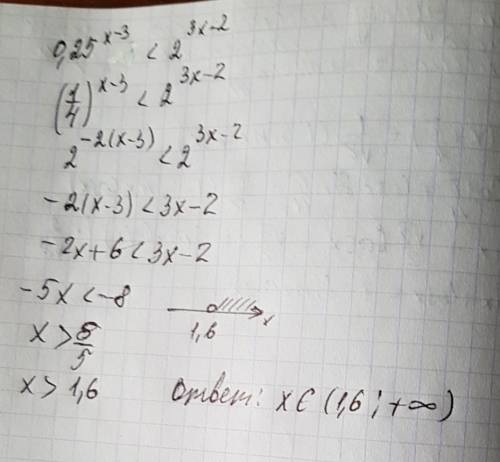 0,25^{x-3} < 2^{3x-2}
(1/4)^{x-3} < 2^{3x-2}
2^{-2(x-3)} < 2^{3x-2}
-2(x-3) < 3x-2
-2x+6 < 3x-2
-5x < -8
x > 8/5
x > 1,6
1,6 x
Ответ: x ∈ (1,6; +∞)